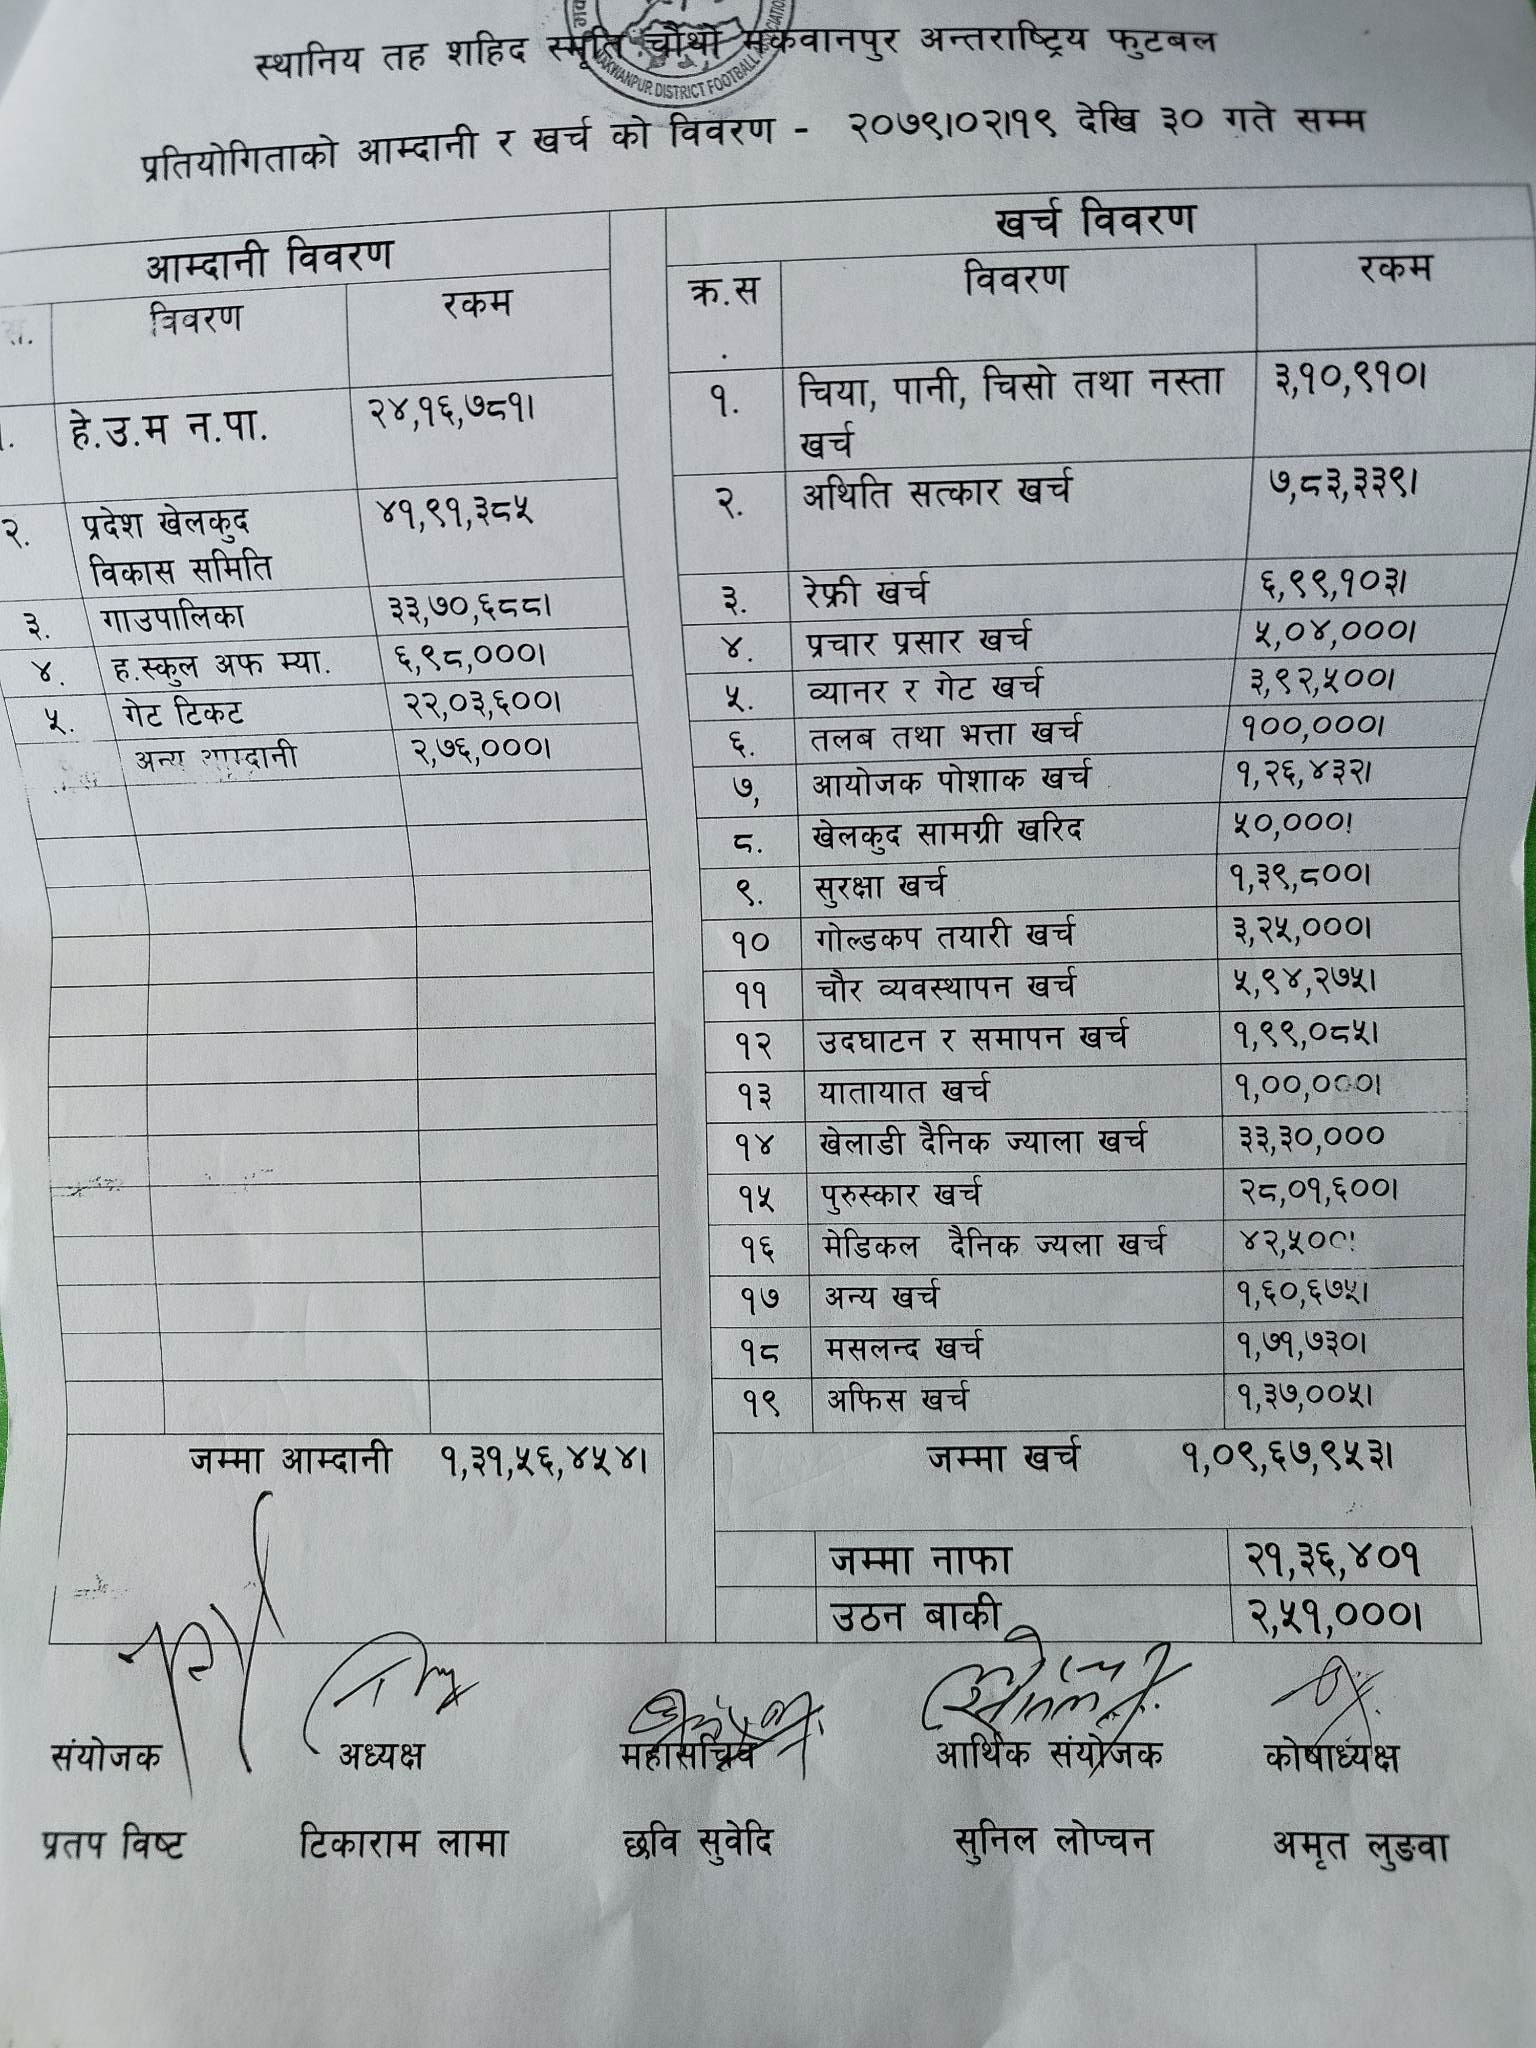 MAKWANPUR DISTRICT FOOTBALL ASSOCIATION
स्थानिय तह शहिद स्मृति चौथो मकवानपुर अन्तराष्ट्रिय फुटबल
प्रतियोगिताको आम्दानी र खर्च को विवरण - २०७९।०२।१९ देखि ३० गते सम्म
आम्दानी विवरण
स. विवरण रकम
१. हे.उ.म न.पा. २४,१६,७८१।
२. प्रदेश खेलकुद ४१,९१,३८५
विकास समिति
३. गाउपालिका ३३,७०,६८८।
४. ह.स्कुल अफ म्या. ६,९८,०००।
५. गेट टिकट २२,०३,६००।
अन्य आम्दानी २,७६,०००।
जम्मा आम्दानी १,३१,५६,४५४।
खर्च विवरण
क्र.स विवरण रकम
.
१. चिया, पानी, चिसो तथा नस्ता ३,१०,९१०।
खर्च
२. अथिति सत्कार खर्च ७,८३,३३९।
३. रेफ्री खर्च ६,९९,१०३।
४. प्रचार प्रसार खर्च ५,०४,०००।
५. व्यानर र गेट खर्च ३,९२,५००।
६. तलब तथा भत्ता खर्च १००,०००।
७, आयोजक पोशाक खर्च १,२६,४३२।
८. खेलकुद सामग्री खरिद ५०,०००।
९. सुरक्षा खर्च १,३९,८००।
१० गोल्डकप तयारी खर्च ३,२५,०००।
११ चौर व्यवस्थापन खर्च ५,९४,२७५।
१२ उदघाटन र समापन खर्च १,९९,०८५।
१३ यातायात खर्च १,००,०००।
१४ खेलाडी दैनिक ज्याला खर्च ३३,३०,०००
१५ पुरुस्कार खर्च २८,०१,६००।
१६ मेडिकल दैनिक ज्यला खर्च ४२,५००।
१७ अन्य खर्च १,६०,६७५।
१८ मसलन्द खर्च १,७१,७३०।
१९ अफिस खर्च १,३७,००५।
जम्मा खर्च १,०९,६७,९५३।
जम्मा नाफा २१,३६,४०१
उठन बाकी २,५१,०००।
संयोजक अध्यक्ष महासचिव आर्थिक संयोजक कोषाध्यक्ष
प्रतप विष्ट टिकाराम लामा छवि सुवेदि सुनिल लोप्चन अमृत लुङवा